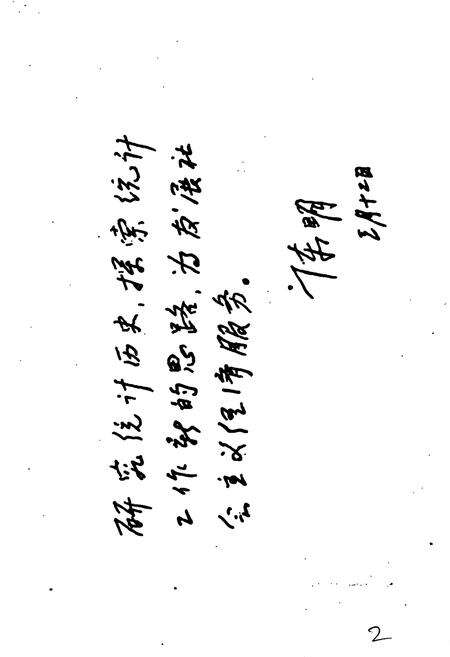 研究统计历史，探索统计
工作新的思路，为发展社
会主义经济服务。
东明
三月十二日
2